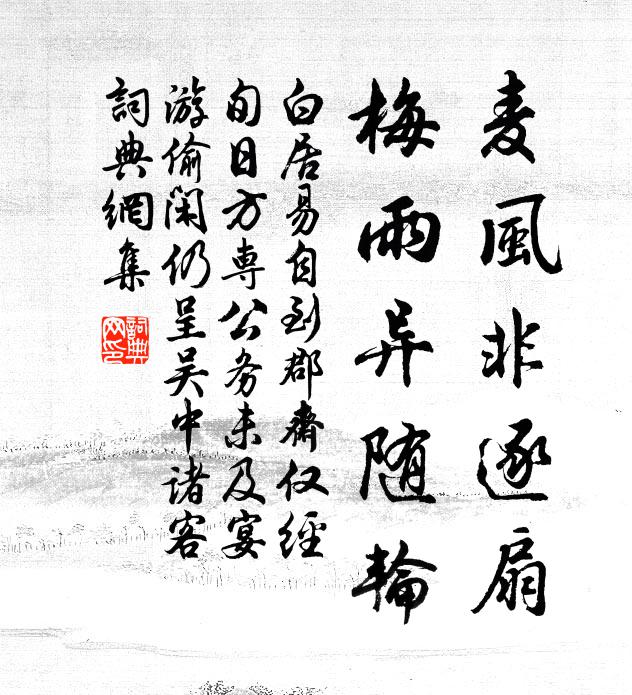 麦風非逐扇
梅雨异随輪
白居易自到郡齋仅經
旬日方専公务未及宴
游偷闲仍呈吴中诸客
詞典網集
詞典
网印